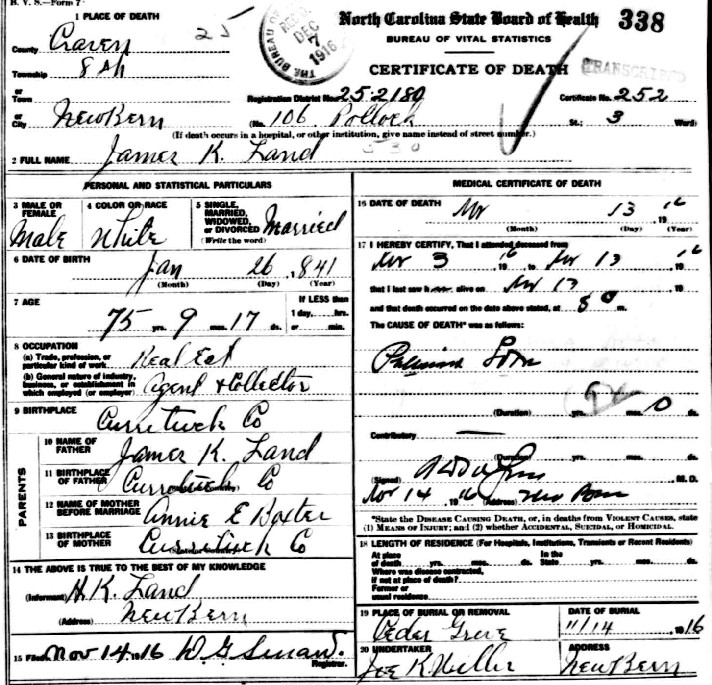 B. V. S.—Form 7
1 PLACE OF DEATH
25
THE BUREAU OF
DEC 7 1916
North Carolina State Board of Health 338
BUREAU OF VITAL STATISTICS
CERTIFICATE OF DEATH
TRANSCRIBED
County Craven
Township 8th
or
Town
or
City NewBern
Registration District No. 25-2180 Certificate No. 252
(No. 106 Pollock St.; 3 Ward)
(If death occurs in a hospital, or other institution, give name instead of street number.)
2 FULL NAME James K. Land
PERSONAL AND STATISTICAL PARTICULARS
3 MALE OR FEMALE
Male
4 COLOR OR RACE
White
5 SINGLE, MARRIED, WIDOWED, or DIVORCED
(Write the word)
Married
6 DATE OF BIRTH
Jan 26, 1841
(Month) (Day) (Year)
7 AGE
75 yrs. 9 mos. 17 ds.
If LESS than
1 day, hrs.
or min.
8 OCCUPATION
(a) Trade, profession, or
particular kind of work Real Est
(b) General nature of industry,
business, or establishment in
which employed (or employer) Agent & Collector
9 BIRTHPLACE
Currituck Co
PARENTS
10 NAME OF FATHER James K. Land
11 BIRTHPLACE OF FATHER Currituck Co
12 NAME OF MOTHER BEFORE MARRIAGE Annie E Baxter
13 BIRTHPLACE OF MOTHER Currituck Co
14 THE ABOVE IS TRUE TO THE BEST OF MY KNOWLEDGE
(Informant) H. K. Land
(Address) NewBern
15 Filed Nov 14, 1916
Registrar.
MEDICAL CERTIFICATE OF DEATH
16 DATE OF DEATH
Nov 13 1916
(Month) (Day) (Year)
17 I HEREBY CERTIFY, That I attended deceased from
Nov 3 1916 to Nov 13 1916
that I last saw h alive on Nov 13, 19
and that death occurred on the date above stated, at m.
The CAUSE OF DEATH* was as follows:
(Duration) yrs. mos. 10 ds.
Contributory —
(Duration) yrs. mos. ds.
(Signed) M. D.
Nov 14 1916 (Address) New Bern
*State the DISEASE CAUSING DEATH, or, in deaths from VIOLENT CAUSES, state
(1) MEANS OF INJURY; and (2) whether ACCIDENTAL, SUICIDAL, or HOMICIDAL.
18 LENGTH OF RESIDENCE (For Hospitals, Institutions, Transients or Recent Residents)
At place of death yrs. mos. ds. In the State yrs. mos. ds.
Where was disease contracted,
if not at place of death?
Former or
usual residence
19 PLACE OF BURIAL OR REMOVAL
Cedar Grove
DATE OF BURIAL
11/14 1916
20 UNDERTAKER
Joe K Willis
ADDRESS
NewBern